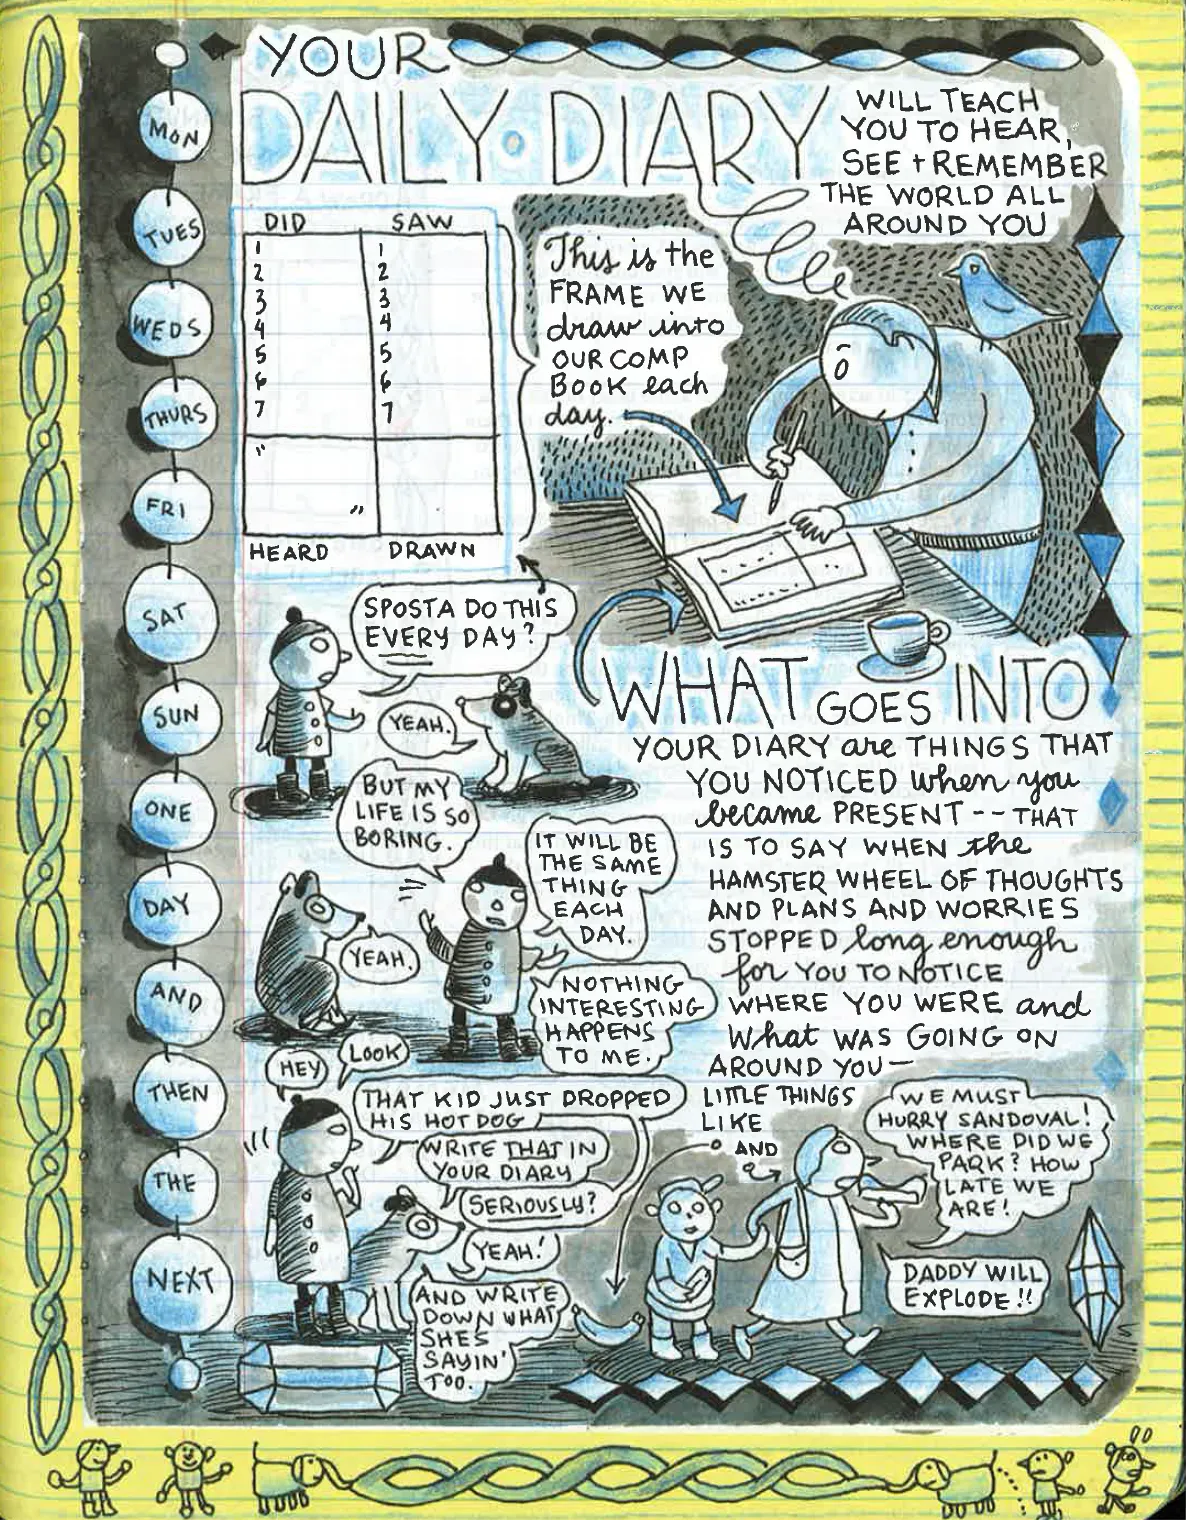 YOUR
DAILY · DIARY
WILL TEACH
YOU TO HEAR,
SEE + REMEMBER
THE WORLD ALL
AROUND YOU
MON
TUES
WEDS
THURS
FRI
SAT
SUN
ONE
DAY
AND
THEN
THE
NEXT
DID SAW
1 1
2 2
3 3
4 4
5 5
6 6
7 7
"
"
HEARD DRAWN
This is the
FRAME WE
draw into
OUR COMP
BOOK each
day.
SPOSTA DO THIS
EVERY DAY?
YEAH.
BUT MY
LIFE IS SO
BORING.
YEAH.
IT WILL BE
THE SAME
THING
EACH
DAY.
NOTHING
INTERESTING
HAPPENS
TO ME.
WHAT GOES INTO
YOUR DIARY are THINGS THAT
YOU NOTICED when you
became PRESENT -- THAT
IS TO SAY WHEN the
HAMSTER WHEEL OF THOUGHTS
AND PLANS AND WORRIES
STOPPED long enough
for YOU TO NOTICE
WHERE YOU WERE and
What WAS GOING ON
AROUND YOU—
LITTLE THINGS
LIKE
AND
HEY
LOOK
THAT KID JUST DROPPED
HIS HOT DOG
WRITE THAT IN
YOUR DIARY
SERIOUSLY?
YEAH!
AND WRITE
DOWN WHAT
SHE'S
SAYIN'
TOO.
WE MUST
HURRY SANDOVAL!
WHERE DID WE
PARK? HOW
LATE WE
ARE!
DADDY WILL
EXPLODE!!